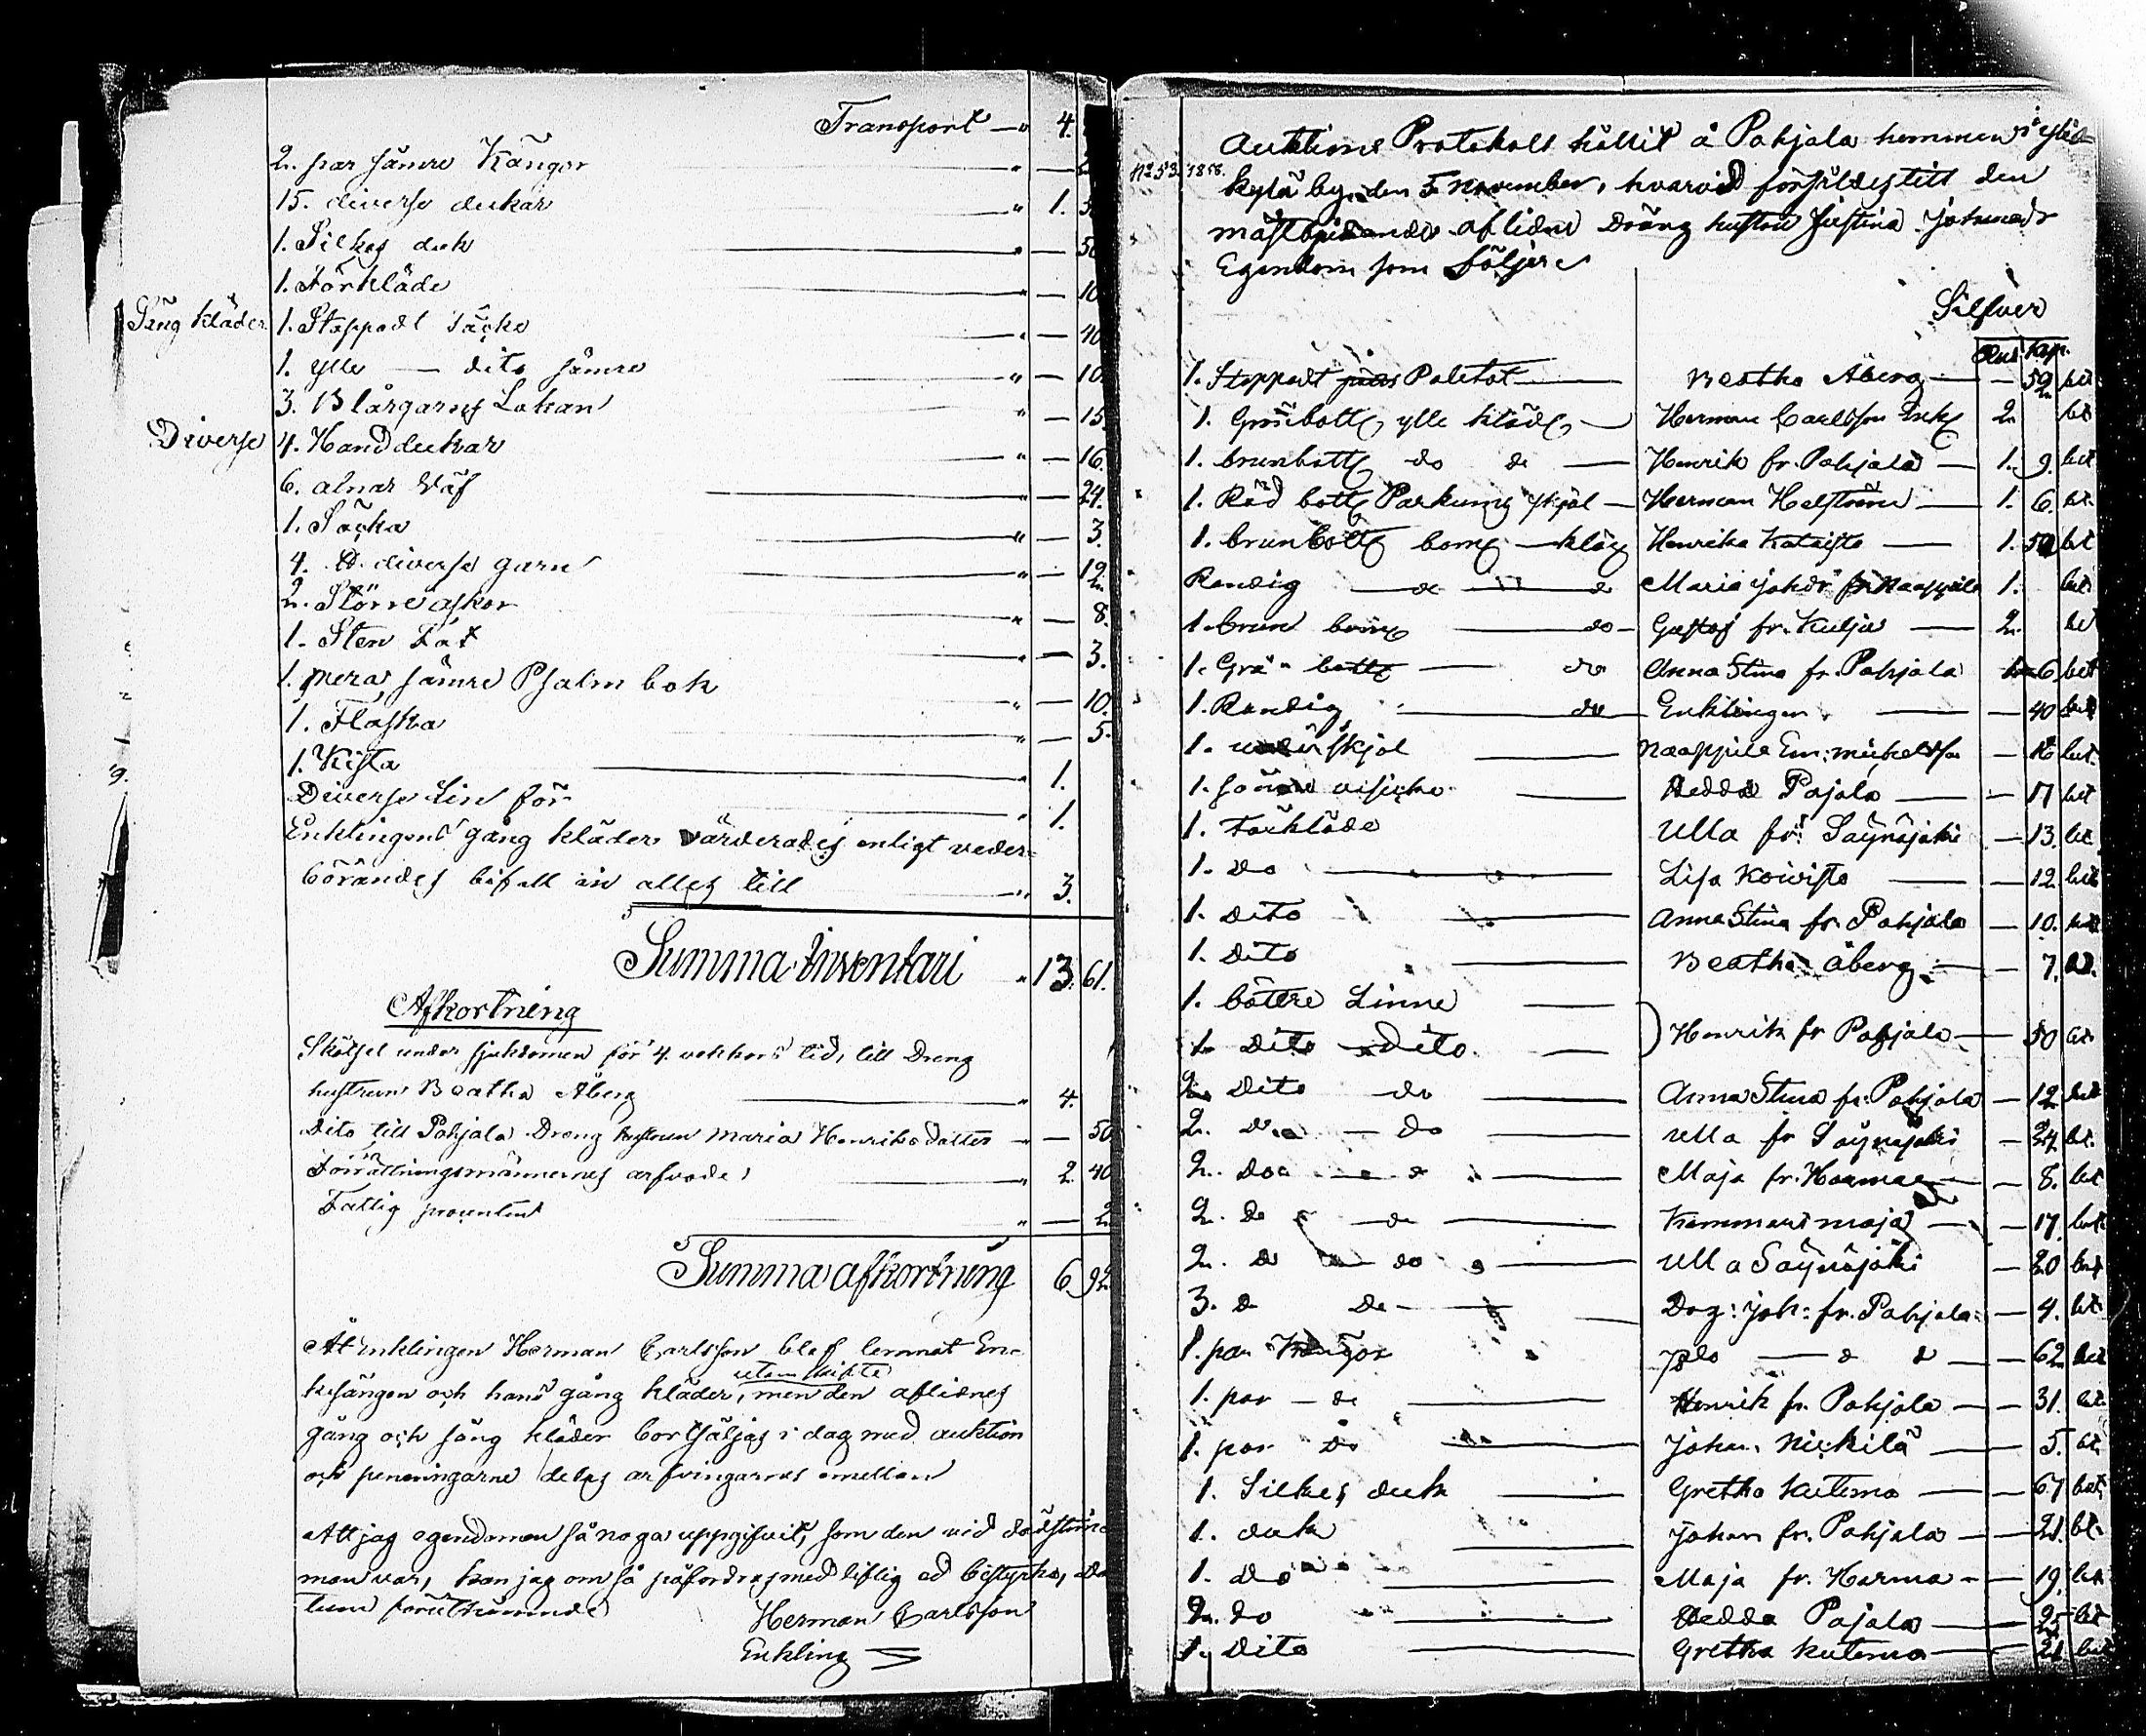 Transport — " 4.
2. par sämre Kängor " —
15. diverse dukar " 1.
1. Silkes duk " — 50
1. Förkläde " — 10
Säng kläder 1. Stoppadt Täcke " — 40
1. ylle — dito sämre " — 10.
3. Blårgarns Lakan " — 15
Diverse 4. Handdukar " — 16.
6. alnar Väf " — 24.
1. Säcka " — 3.
4. ℔ diverse garn " — 12.
2. Större askor " — 8.
1. Sten Fat " — 3.
1. mera sämre Psalm bok " — 10.
1. Flaska " — 5.
1. Kista " 1.
Diverse Lin för " 1.
Enklingens gång kläder värderades enligt veder-
börandes bifall in alles till " 3.
Summa Inventarii " 13. 61.
Afkortning
Skötsel under sjukdomen för 4. veckors tid, till Dreng
hustrun Beatha Åberg " 4.
Dito till Pohjala Dreng hustrun Maria Henriksdotter " — 50
Förrättningsmännernes arfvode " 2. 40
Fattig procenten " — 2
Summa afkortning 6. 92.
Åt Enklingen Herman Carlsson blef lemnat En-
utom skifte
kesängen och hans gång kläder, men den aflidnes
gång och säng kläder bortsäljas i dag med auktion
och penningarne delas arfvingarnes emellan
Att jag egendomen så noga uppgifvit, som den vid dödstim-
man var, kan jag om så påfordras med liflig ed bestyrka, Da
tum förutnämnde
Herman Carlsson
Enkling
No 53. 1858.
Auktions Protokoll hållit å Pohjala hemman i
kylä by, den 5 November, hvarvid försåldes till den
mäst bjudande aflidne Dräng hustru Justina Johansdr
Egendom som följer
Silfver
Rub. Kop.
1. Stoppadt Paletot — Beatha Åberg — — 52 bet
1. Grönbott, ylle kläd, — Herman Carlsson Enkl 2. bet
1. brunbott do do — Henrik fr. Pohjala — 1. 9. bet
1. Röd bott Parkums kjol — Herman Helström — 1. 6. bt.
1. brunbott bom — kläg Henrika Kataisto — 1. 50 bet
Randig — do — do Maria Johdr fr. Naappila 1. bet
1. brun bom — do — Gustaf fr. Kulju — 2. bet
1. Grå bott — do Anna Stina fr. Pohjala 6. bet
1. Randig — do Enklingen — — 40 bet
1. under kjol — Naappila Em: Mickelsson — 16 bet.
1. sämre — Hedda Pajala — — 17 bet
1. Förkläde Ulla fr: Säynäjoki — 13. bet
1. do — Lisa Koivisto — — 12. bet
1. Dito — Anna Stina fr. Pohjala — 10. bet
1. Dito — Beatha Åberg — — 7. bt.
1. bättre Linne —
1. Dito Dito. — Henrik fr Pohjala — 50 bet
2. Dito do Anna Stina fr. Pohjala — 12. bet
2. do — do — Ulla fr Säynäjoki — 24. bt.
2. do — Maja fr. Harma — — 8. bet
2. do — do — Kammari maja — — 17. bet
2. do do — Ulla Säynäjoki — 20 bet
3. do do — Drg: Joh: fr. Pohjala — 4. bt.
1. par Kängor do — — 62. bet
1. par — do — Henrik fr. Pohjala — — 31. bet
1. par do — Johan Nickilä — 5. bt.
1. Silkes duk — Gretha Kutema — — 67 bet
1. duk — Johan fr. Pohjala — — 21. bt.
1. do — Maja fr. Harma — — 19. bet
2. do — Hedda Pajala — 25 bet
1. Dito — Gretha Kutema — 21 bet